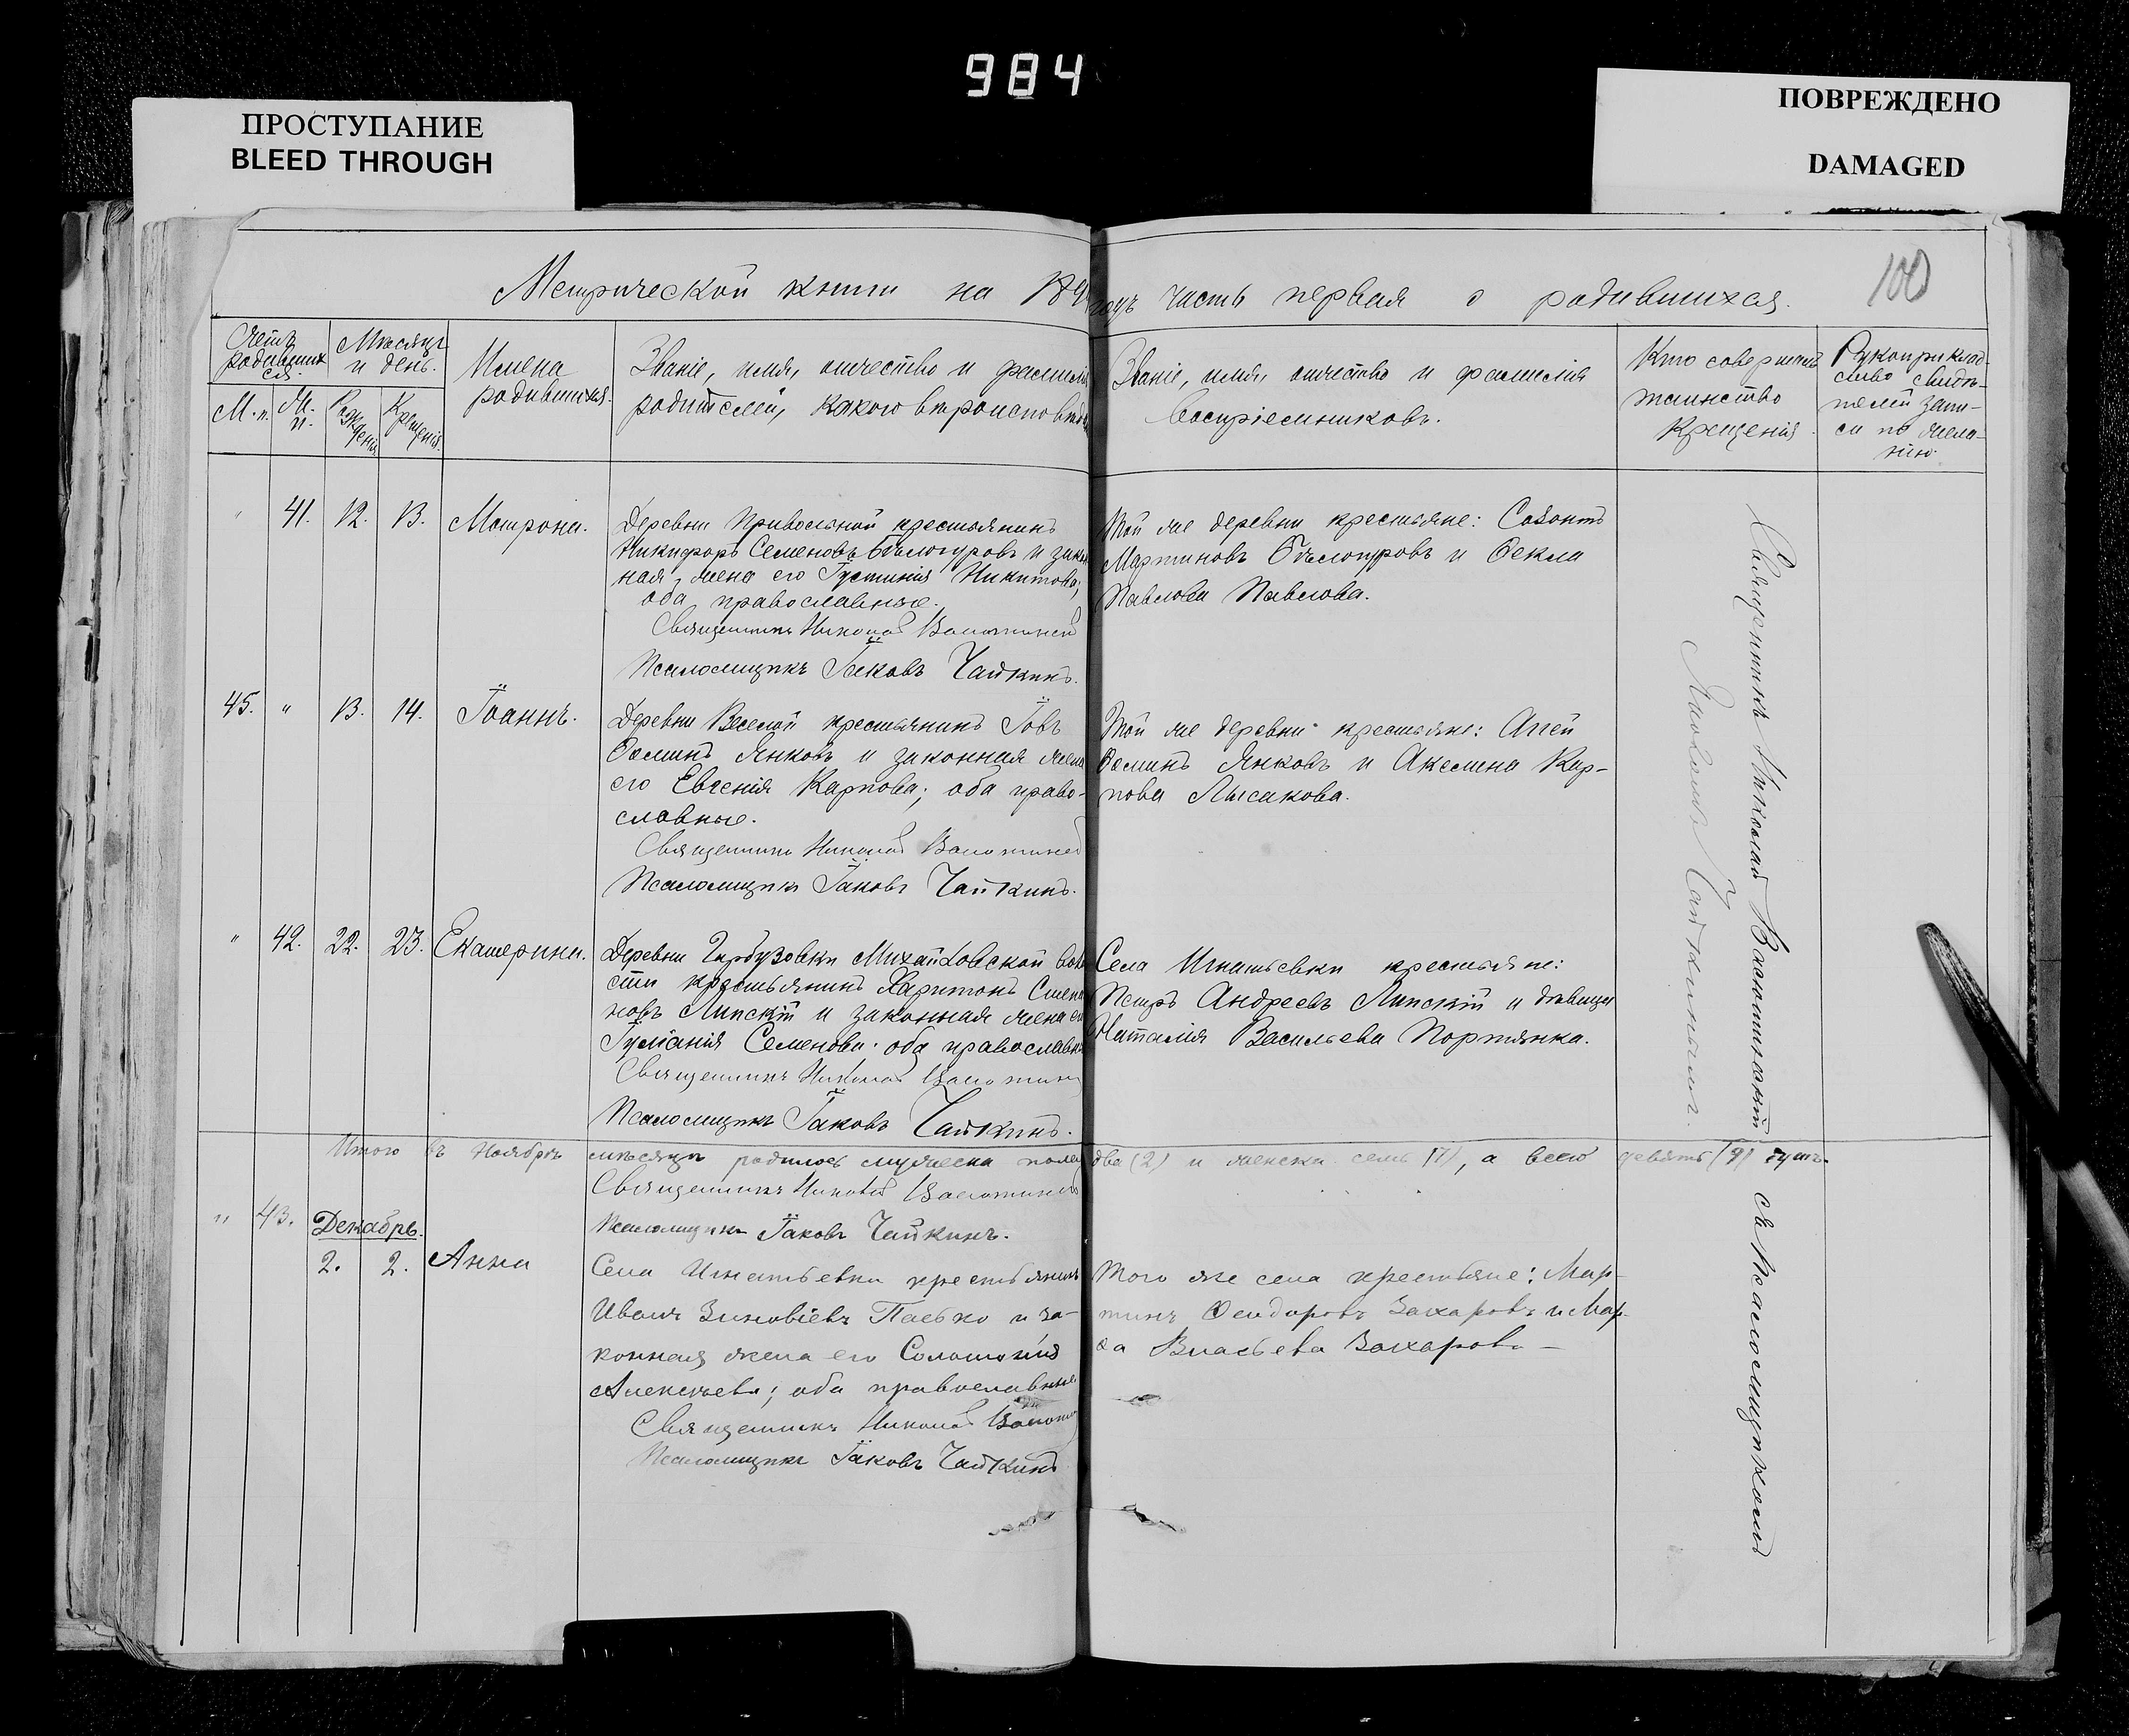 984
ПРОСТУПАНИЕ
BLEED THROUGH
ПОВРЕЖДЕНО
DAMAGED
100
Метрической книги на 189
годъ часть первая о родившихся.
Счетъ родившихся.
Мѣсяцъ и день.
Имена родившихся.
Званіе, имя, отчество и фамилія
родителей, какого вѣроисповѣд
Званіе, имя, отчество и фамилія
Воспріемниковъ.
Кто совершалъ
таинство
Крещенія
Рукоприклад-
ство свидѣ-
телей запи-
си по жела-
нію.
М. п.
Рожденія
Крещенія.
" 41. 12. 13. Матрона.
Деревни Привольной крестьянинъ
Никифоръ Семеновъ Бѣлогуровъ и закон
ная жена его Іустинія Никитова;
оба православные.
Священникъ Николай
Псаломщикъ Іаковъ Чайкинъ.
Той же деревни крестьяне: Созонтъ
Мартиновъ Бѣлогуровъ и Ѳекла
Павлова Павлова.
45. " 13. 14. Іоаннъ.
Деревни Веселой крестьянинъ Іовъ
Ѳоминъ Янковъ и законная жена
его Евгенія Карпова; оба право-
славные.
Священникъ Николай
Псаломщикъ Іаковъ Чайкинъ.
Той же деревни крестьяне: Агей
Ѳоминъ Янковъ и Акилина Кар-
пова Лысакова.
" 42. 22. 23. Екатерина.
Деревни Гарбузовки Михайловской воло
сти крестьянинъ Харитонъ Степа
новъ Липскій и законная жена его
Іуліанія Семенова; оба православн
Священникъ Николай
Псаломщикъ Іаковъ Чайкинъ.
Села Игнатьевки крестьяне:
Петръ Андреевъ Липскій и дѣвица
Наталія Васильева Портянка.
Итого въ Ноябрѣ мѣсяцѣ родилось мужеска пола
два (2) и женска семь (7), а всего девять (9) душъ.
Священникъ Николай
Псаломщикъ Іаковъ Чайкинъ.
" 43. Декабрь.
2. 2. Анна
Села Игнатьевки крестьянинъ
Иванъ Зиновіевъ Пасько и за-
конная жена его Соломонія
Алексѣева; оба православные
Священникъ Николай
Псаломщикъ Іаковъ Чайкинъ
Того же села крестьяне: Мар-
тинъ Захаровъ и Мар-
ѳа Власьева Захарова
Священникъ Николай съ Псаломщикомъ
Іаковомъ Чайкинымъ.